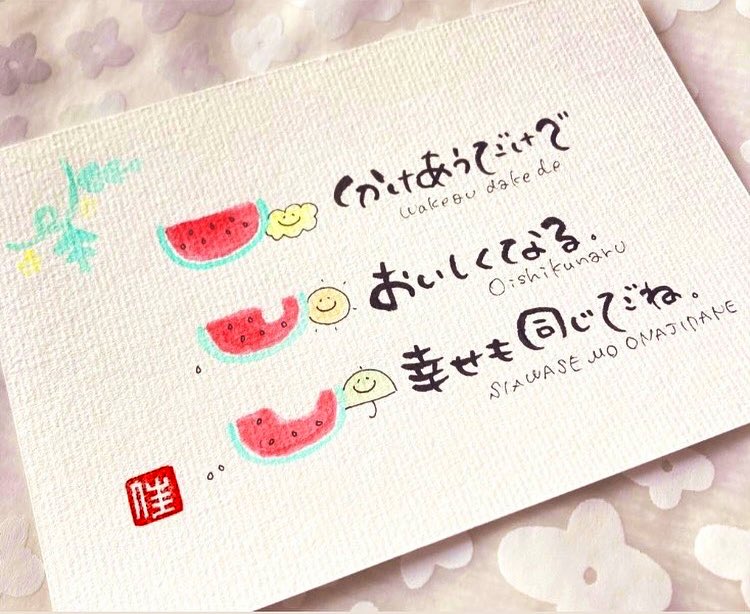 わけあうだけで
wakeau dake de
おいしくなる。
Oishikunaru
幸せも同じだね。
SIAWASE MO ONAJIDANE
佳